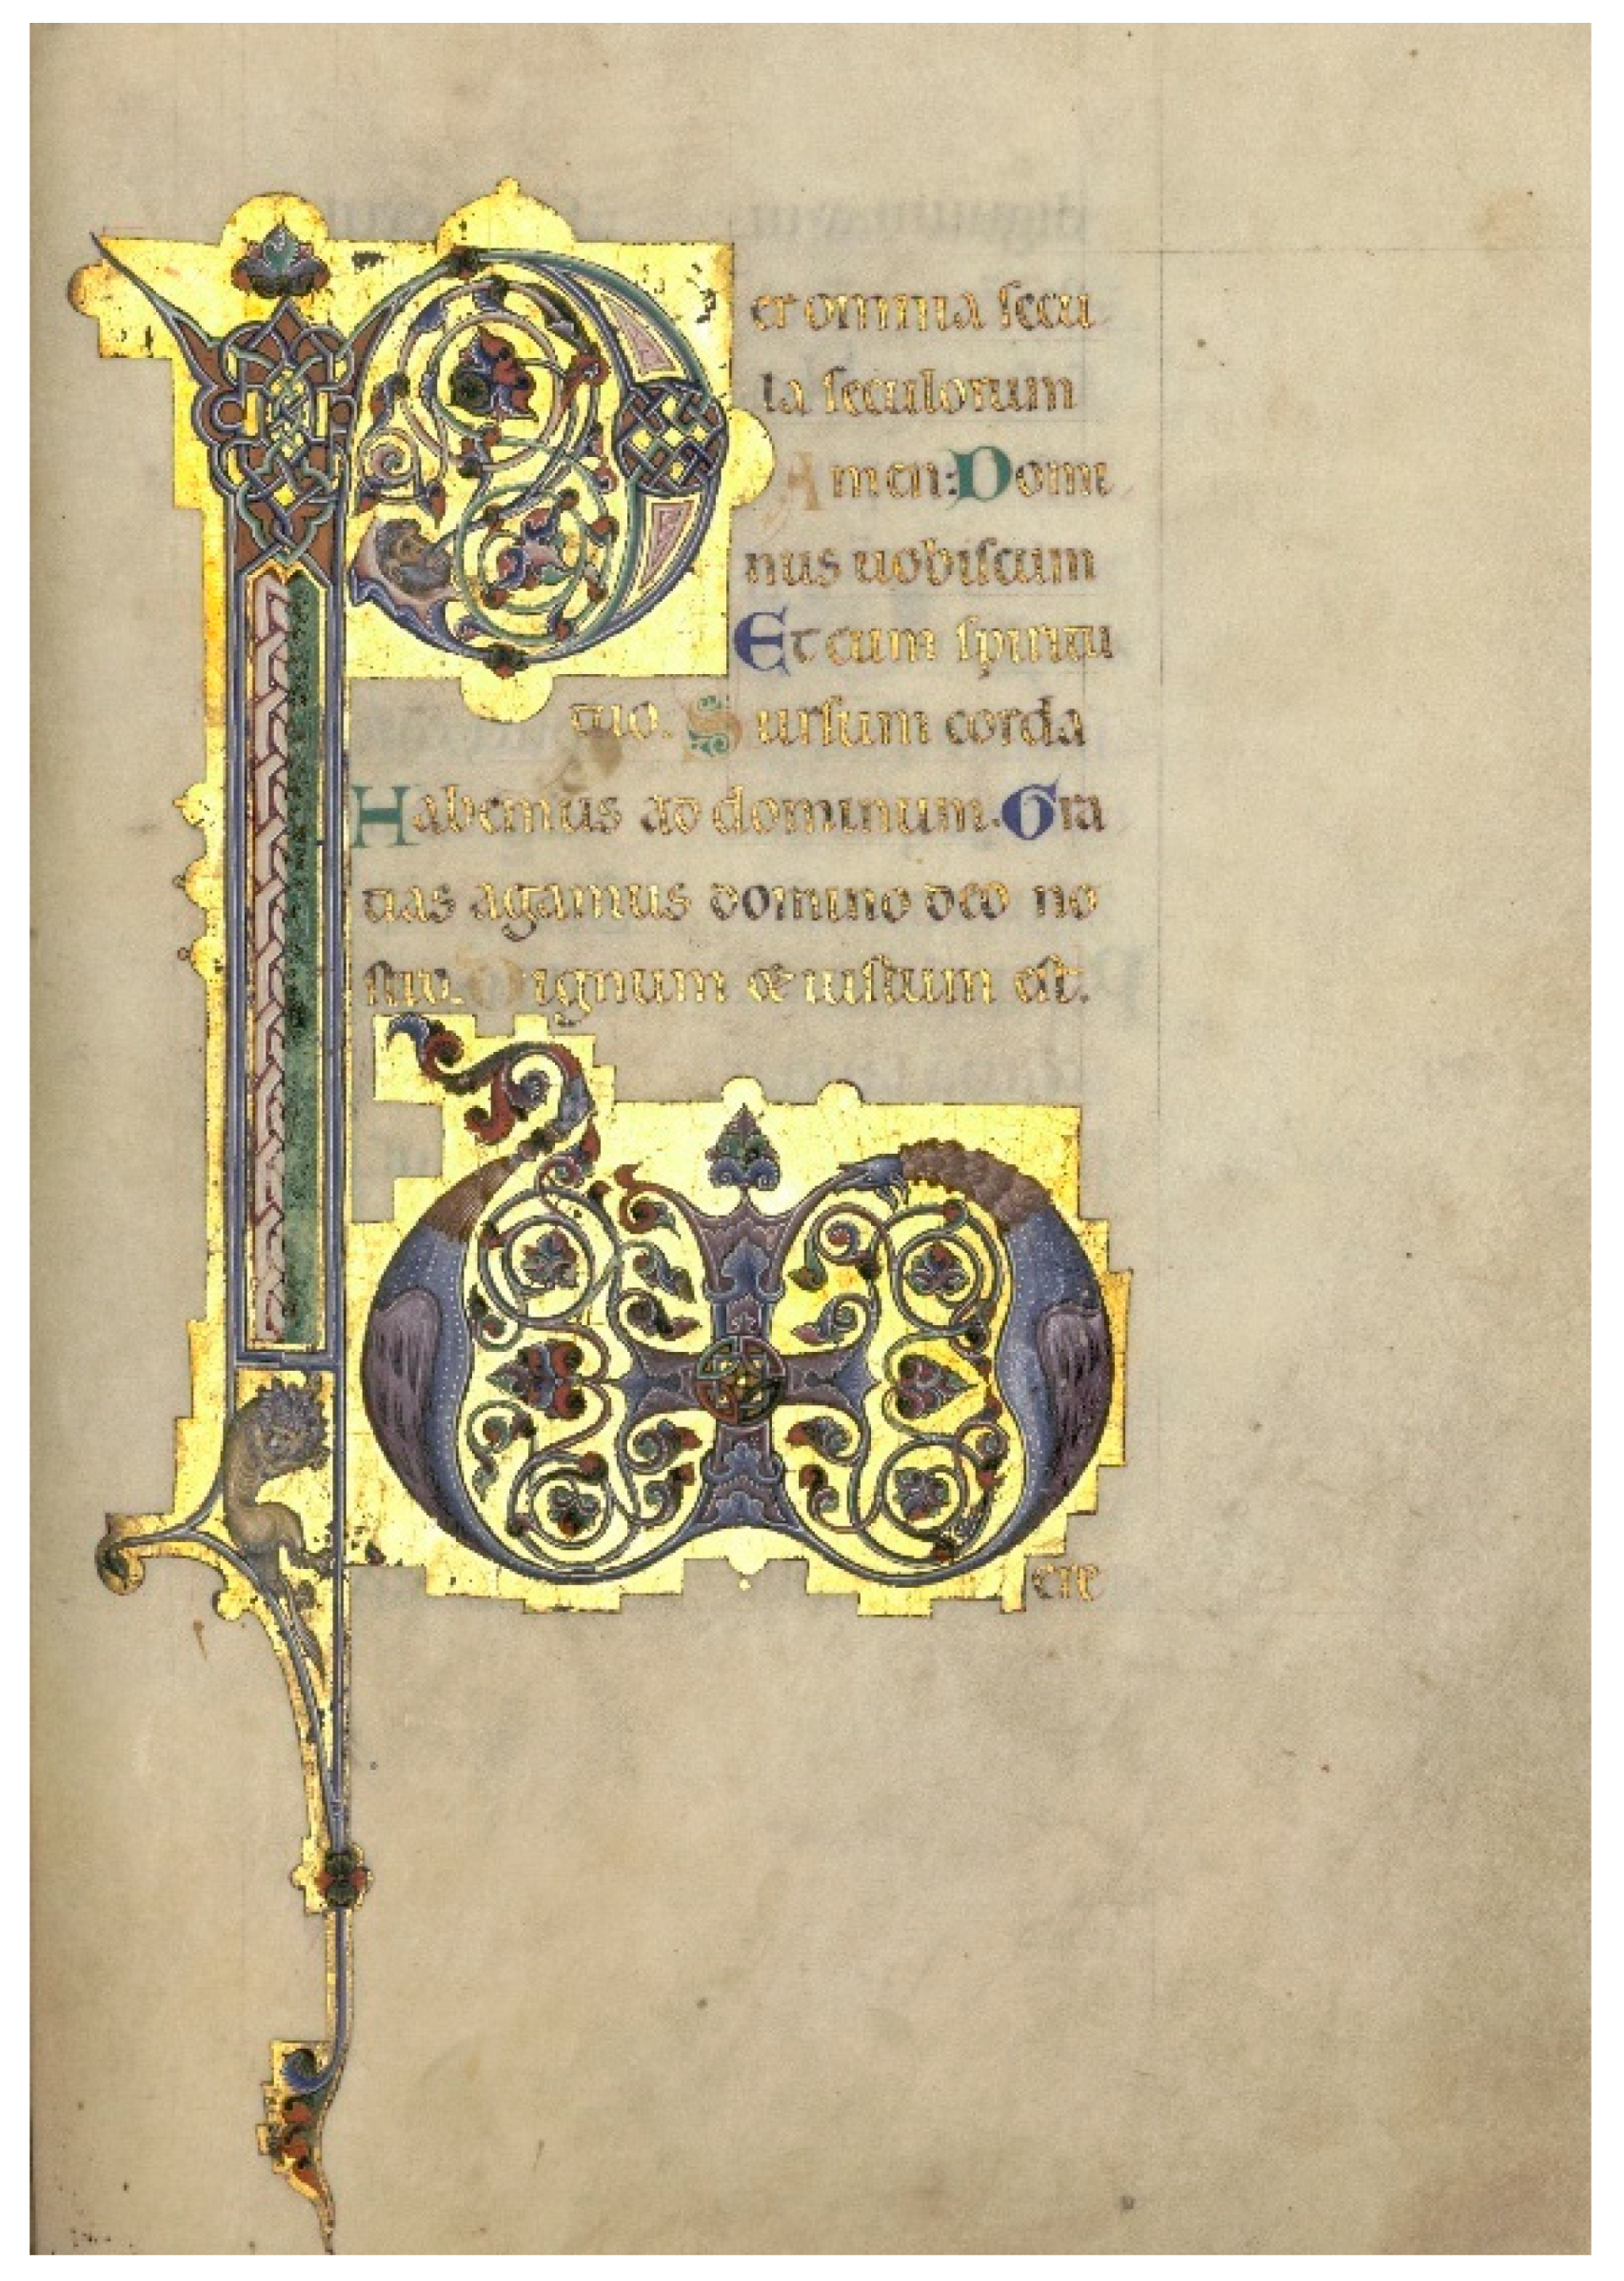 Per omnia secu
la seculorum
Amen: Domi
nus uobiscum
Et cum spiritu
tuo. Sursum corda
Habemus ad dominum. Gra
tias agamus domino deo no
stro. Dignum & iustum est.
Vere